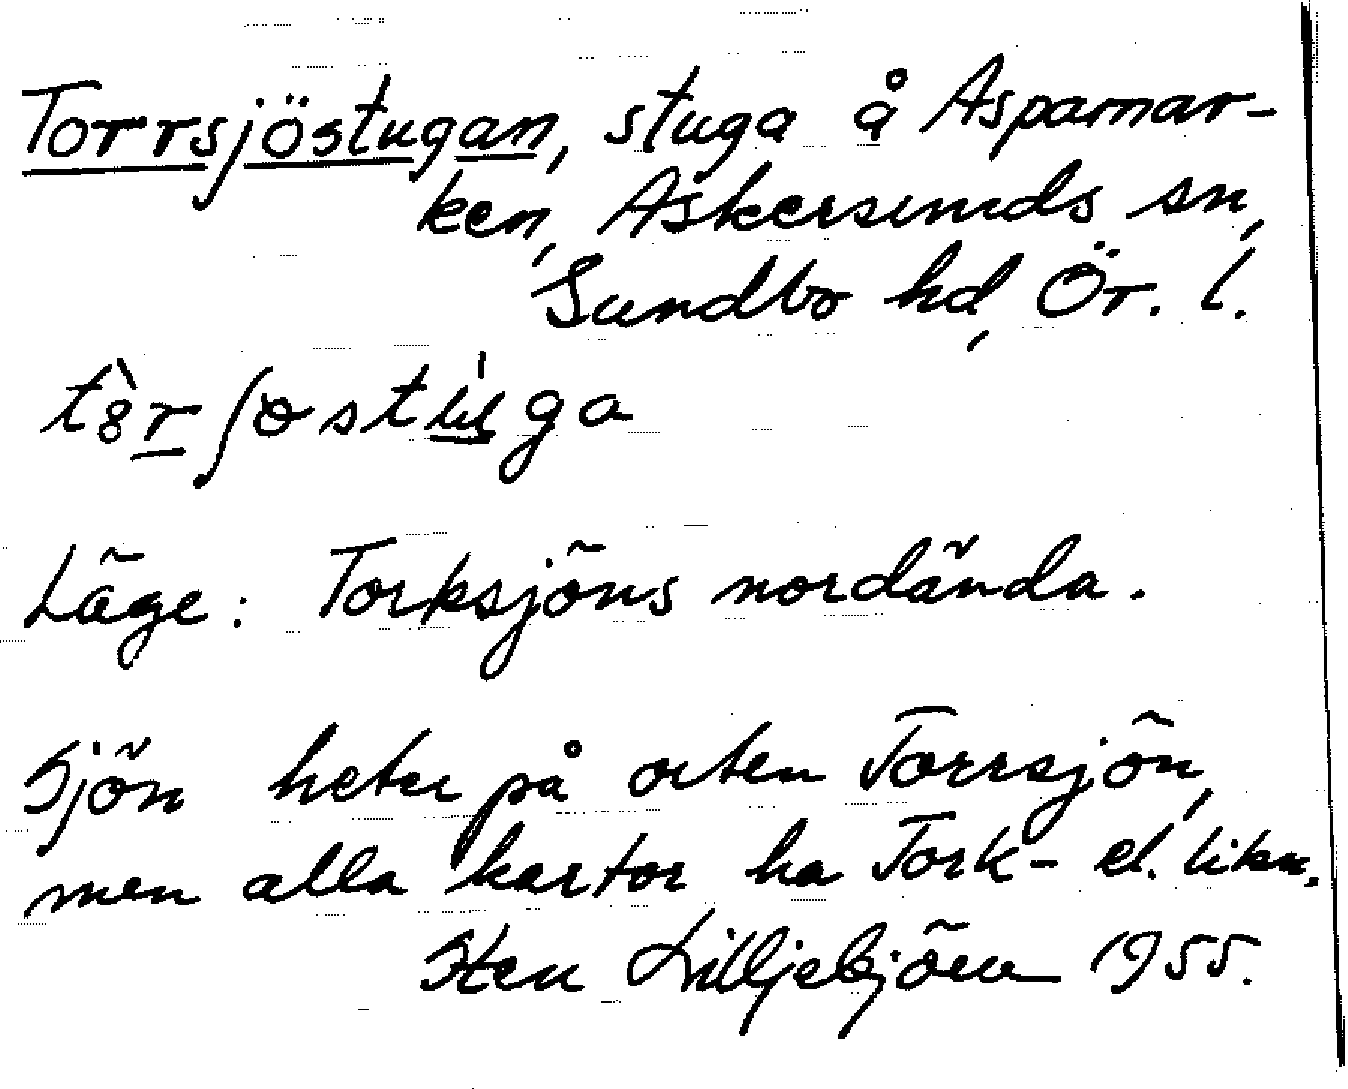 Torrsjöstugan, stuga å Aspamar-
ken, Askersunds sn,
Sundbo hd, Ör. l.
Läge: Torksjöns nordända.
Sjön heter på orten Torrsjön,
men alla kartor ha Tork- el. likn.
Sten Lilljebjörn 1955.